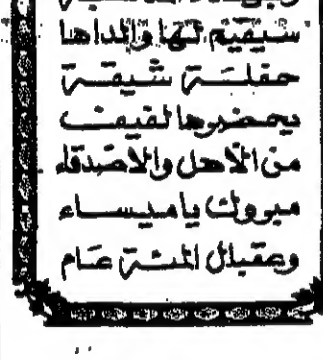 سيقيم لها والداها
حفلة شيقة
يحضرها لفيف
من الأهل والأصدقاء
مبروك يا ميساء
وعقبال المئة عام